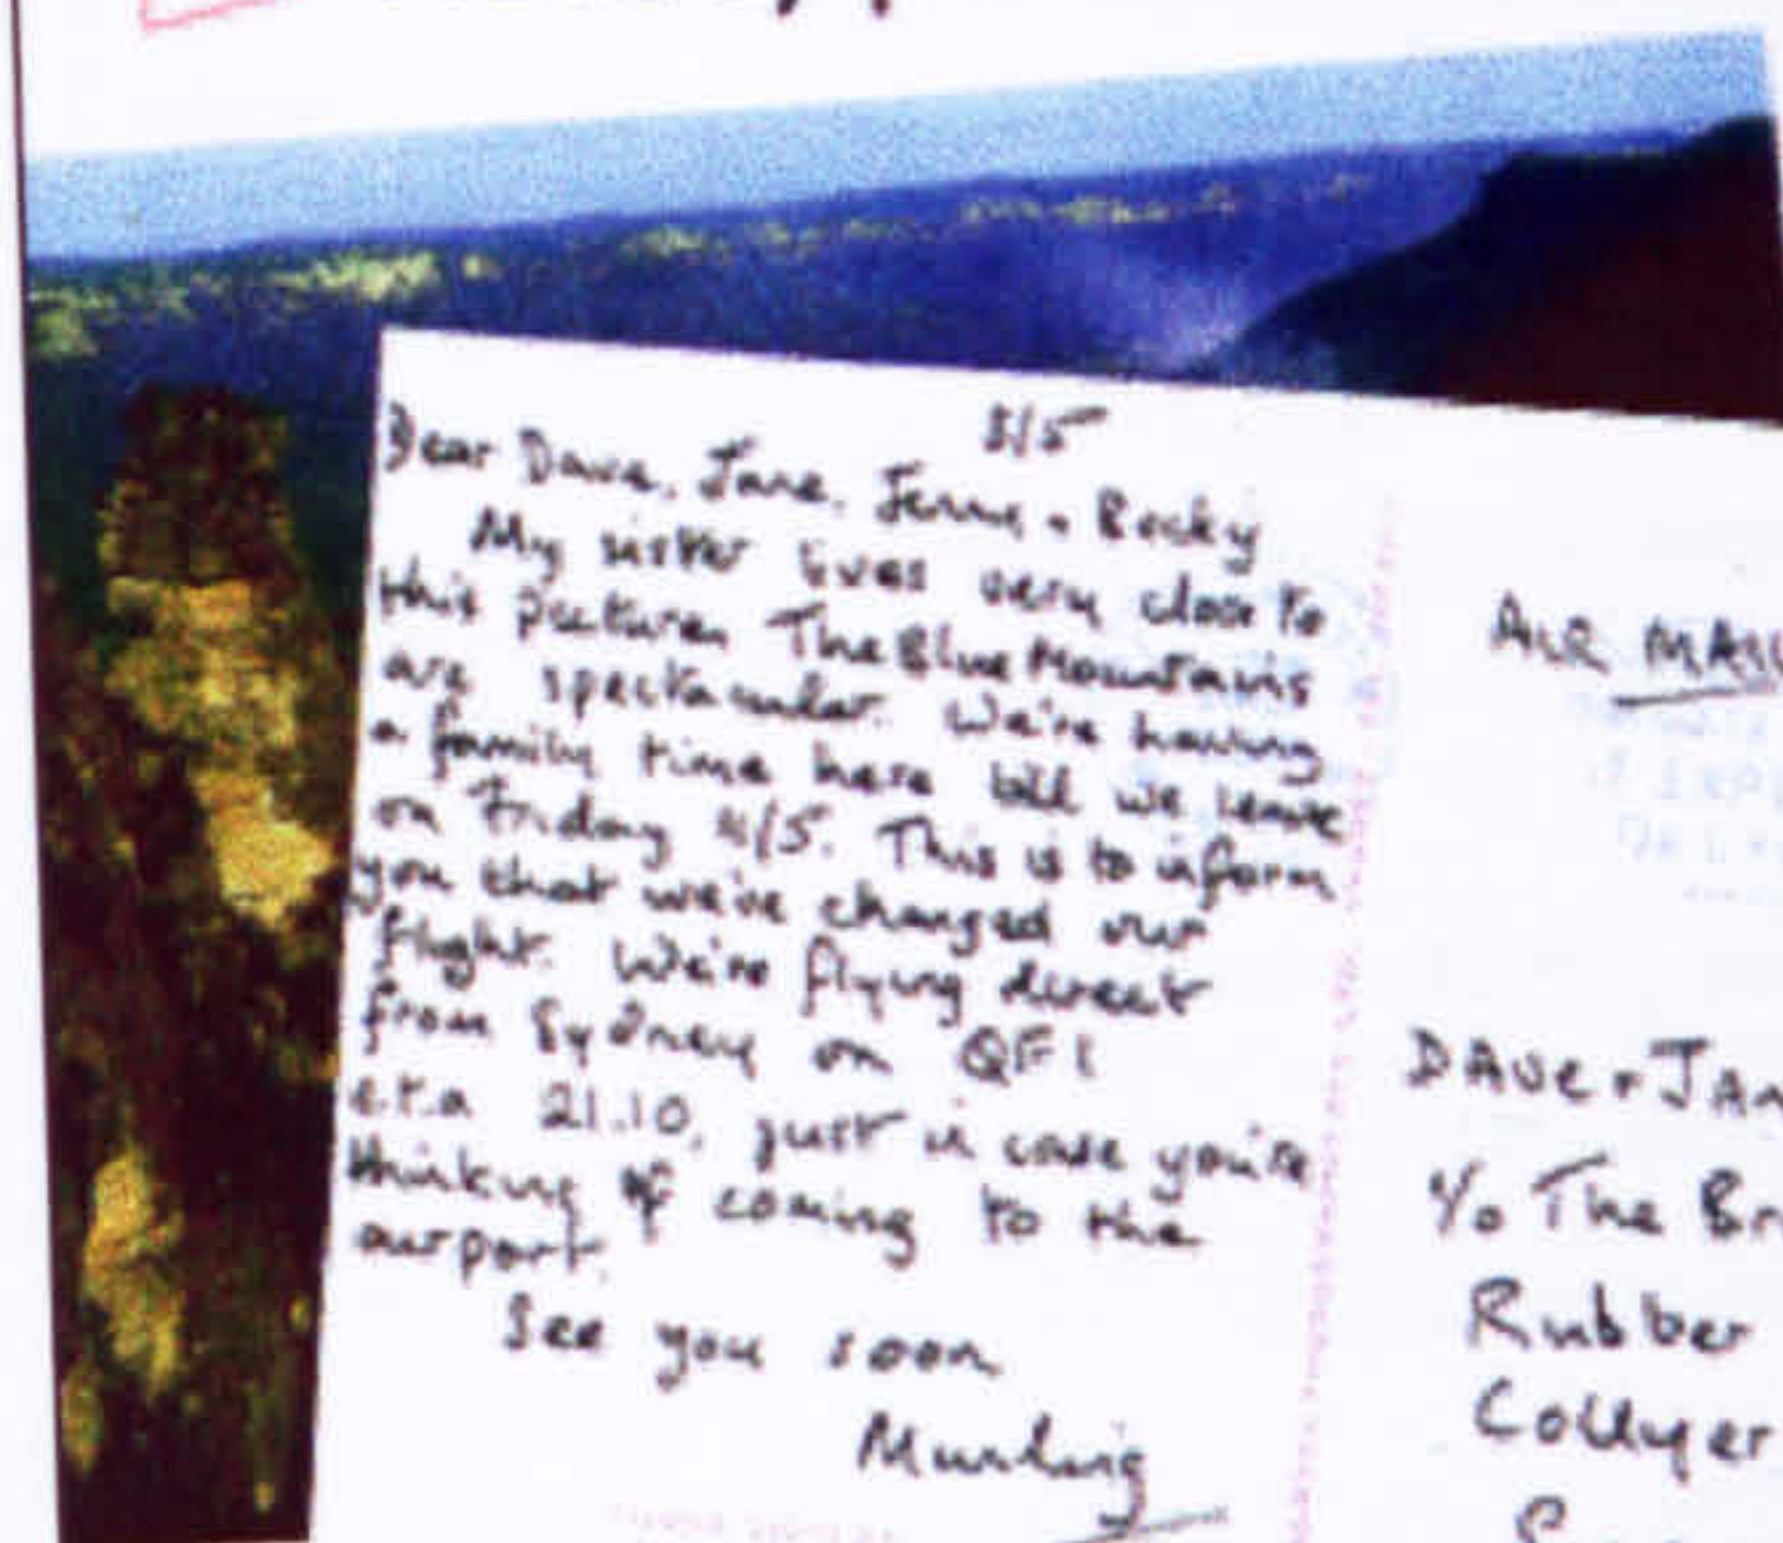 8/5
Dear Dave, Jane, Jenny + Becky
My sister lives very close to
this picture. The Blue Mountains
are spectacular. We're having
a family time here till we leave
on Friday 11/5. This is to inform
you that we've changed our
flight. We're flying direct
from Sydney on QF1
e.t.a 21.10, just in case you're
thinking of coming to the
airport.
See you soon
AIR MAIL
DAVE + JAN
c/o The Br
Rubber
Collyer